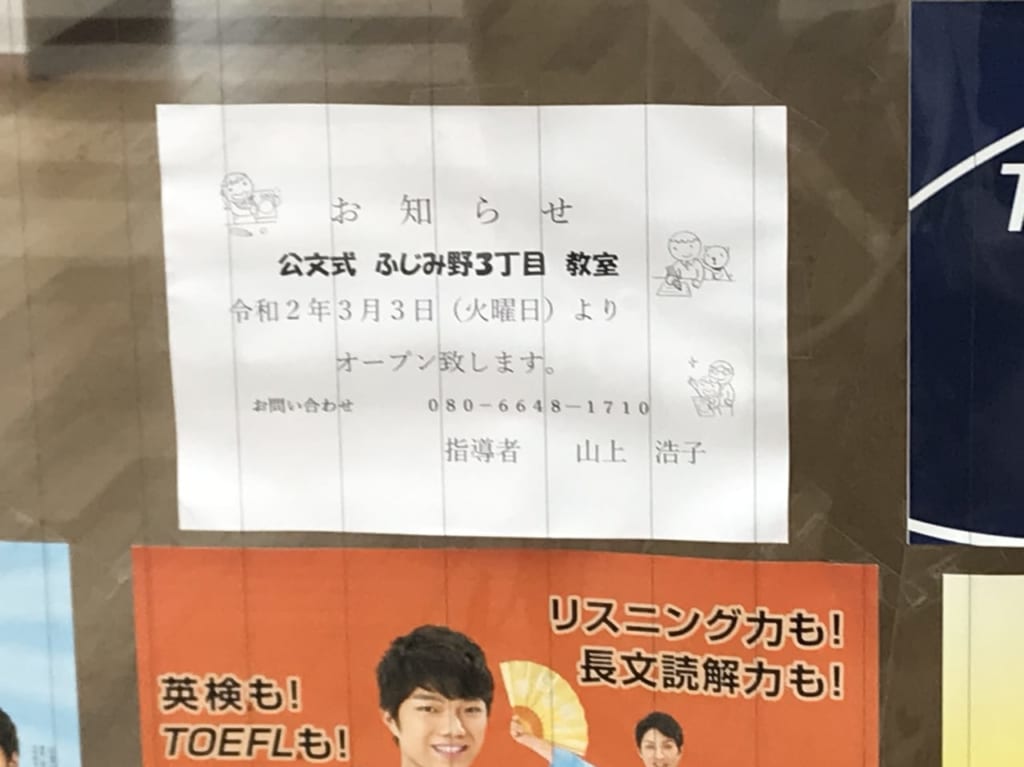 お知らせ
公文式 ふじみ野3丁目 教室
令和２年３月３日（火曜日）より
オープン致します。
お問い合わせ ０８０－６６４８－１７１０
指導者 山上 浩子
リスニング力も!
長文読解力も!
英検も!
TOEFLも!